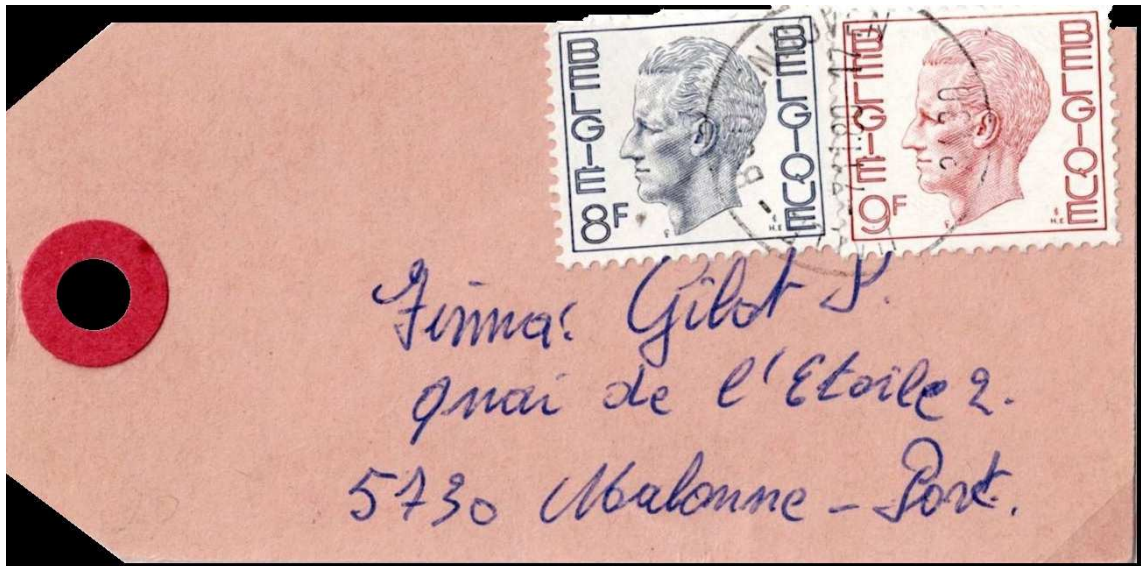 BELGIE BELGIQUE 8F
BELGIE BELGIQUE 9F
Firma: Gilot P.
quai de l'Etoile 2.
5730 Malonne - Port.